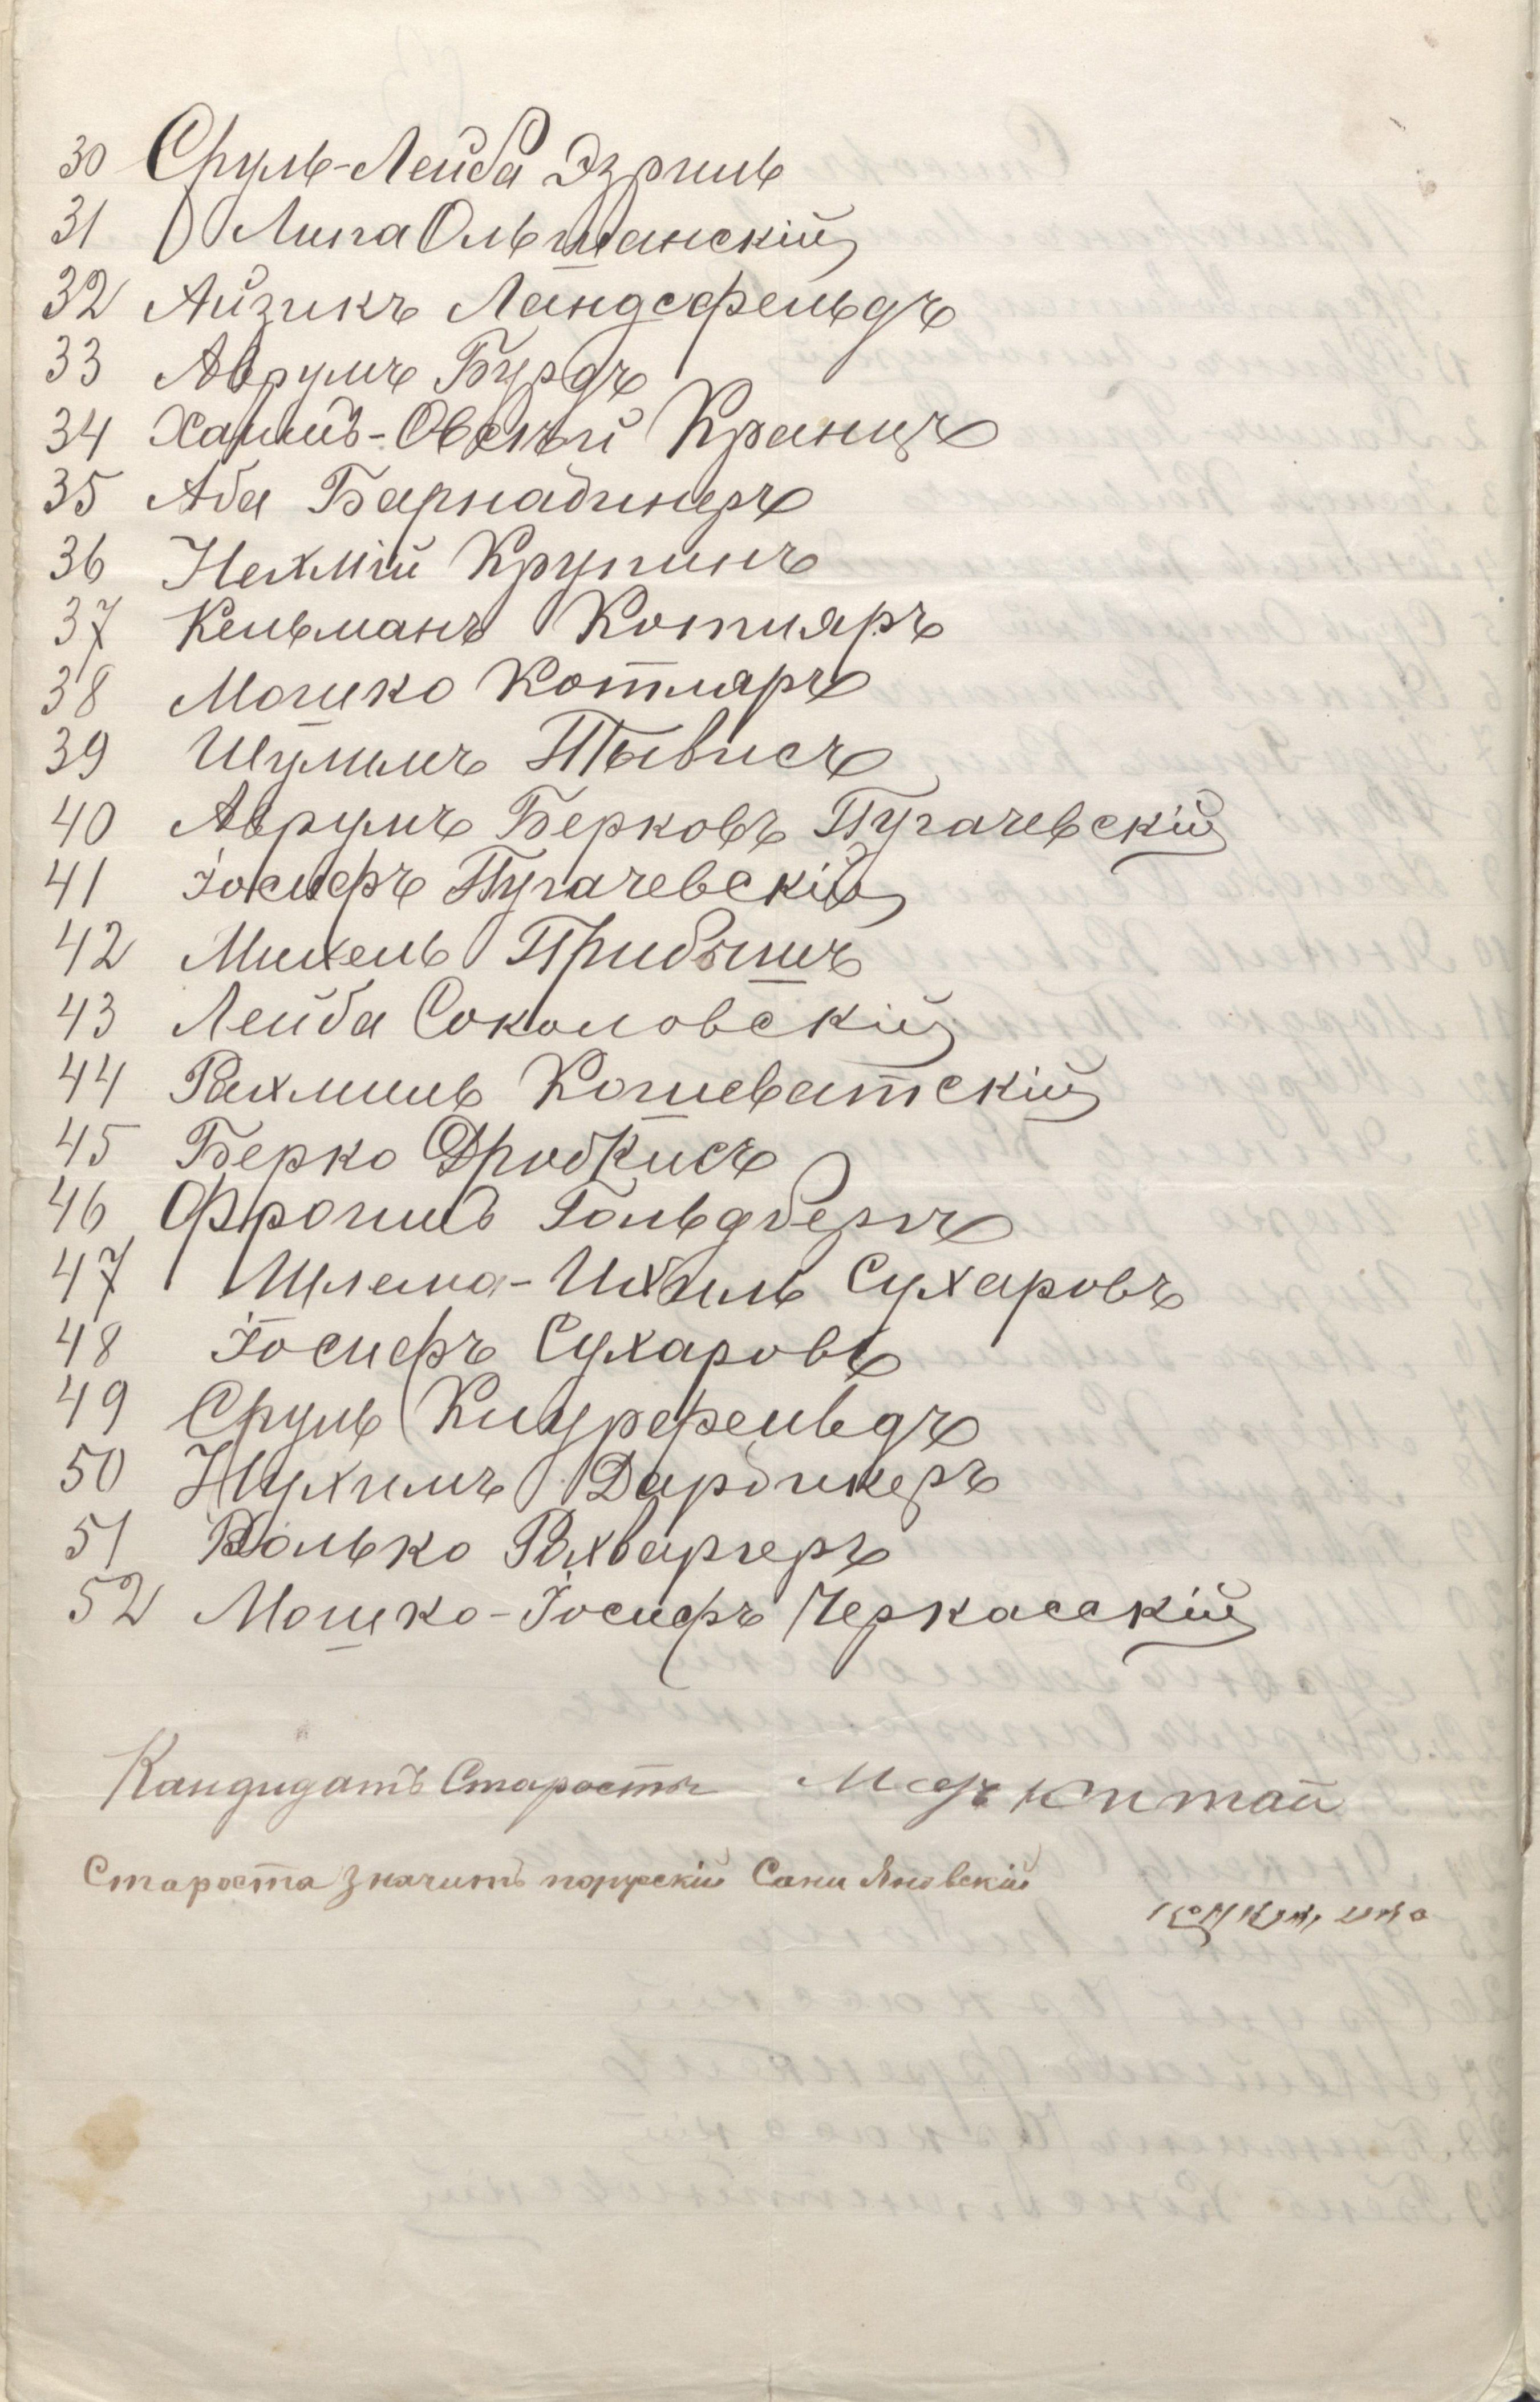 30 Сруль-Лейба Эзриль
31 Липа Ольшанскій
32 Айзикъ Ландсфельдъ
33 Аврумъ Бурдъ
34 Хаимъ-Овсѣй Кранцъ
35 Аба Барнадинеръ
36 Нехмій Крупикъ
37 Кельманъ Котляръ
38 Мошко Котляръ
39 Шулимъ Пывисъ
40 Аврумъ Берковъ Пугачевскій
41 Іосифъ Пугачевскій
42 Михель Прибышъ
43 Лейба Соколовскій
44 Рахмиль Кошеватскій
45 Берко Дробкисъ
46 Фроимъ Гольдбергъ
47 Шлема-Ихиль Сухаровъ
48 Іосифъ Сухаровъ
49 Сруль Кицрфельдъ
50 Нухимъ Дардикеръ
51 Волько Рахваргеръ
52 Мошко-Іосифъ Черкасскій
Кандидатъ Старосты Китай
Староста значитъ Яновскій